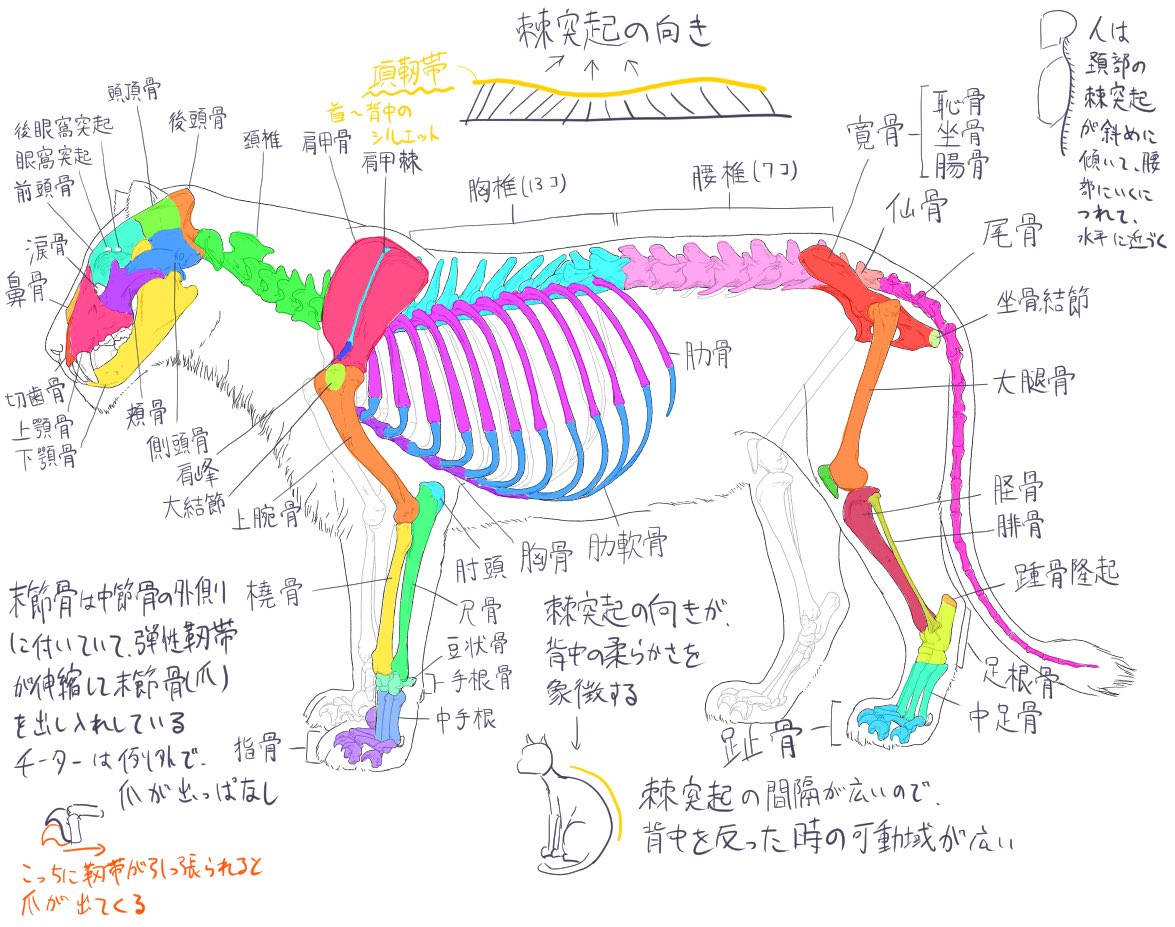 棘突起の向き
項靭帯
首〜背中の
シルエット
人は
頚部の
棘突起
が斜めに
傾いて、腰
部にいくに
つれて、
水平に近づく
頭頂骨
後頭骨
後眼窩突起
眼窩突起
前頭骨
涙骨
鼻骨
頚椎
肩甲骨
肩甲棘
胸椎(13コ)
腰椎(7コ)
寛骨
恥骨
坐骨
腸骨
仙骨
尾骨
坐骨結節
肋骨
大腿骨
切歯骨
上顎骨
下顎骨
頬骨
側頭骨
肩峰
大結節
上腕骨
脛骨
腓骨
踵骨隆起
肘頭
胸骨
肋軟骨
橈骨
尺骨
豆状骨
手根骨
中手根
指骨
足根骨
中足骨
趾骨
末節骨は中節骨の外側
に付いていて、弾性靭帯
が伸縮して末節骨(爪)
を出し入れしている
チーターは例外で、
爪が出っぱなし
こっちに靭帯が引っ張られると
爪が出てくる
棘突起の向きが、
背中の柔らかさを
象徴する
棘突起の間隔が広いので、
背中を反った時の可動域が広い